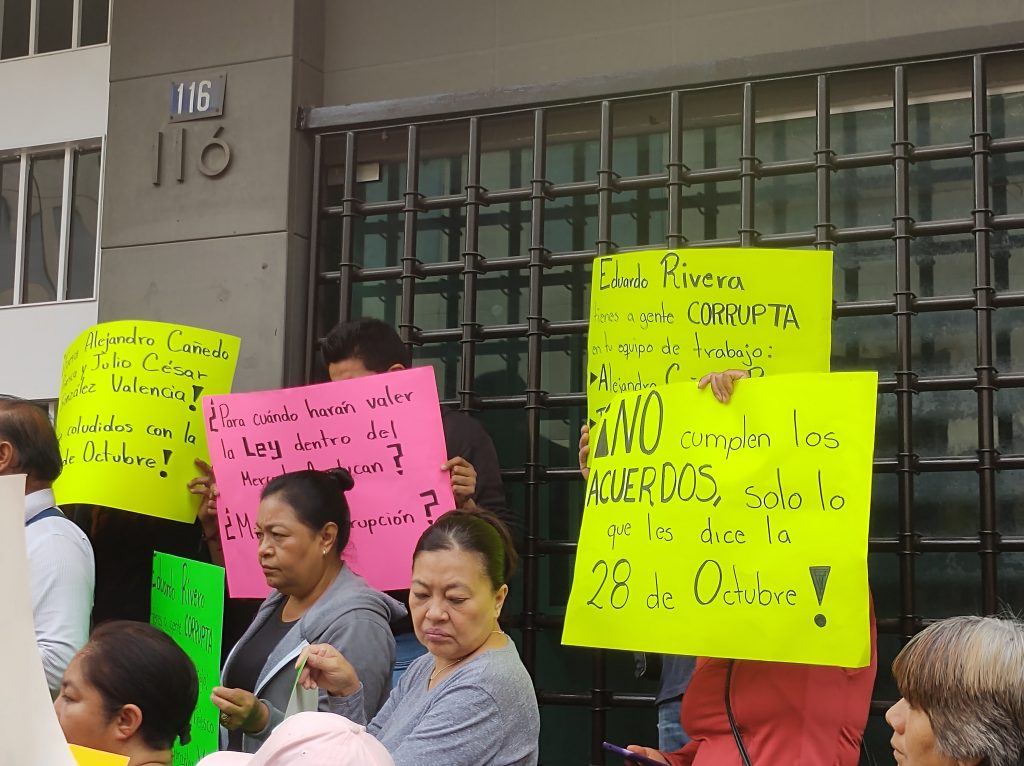 116
116
Alejandro Cañedo
y Julio César
González Valencia!
coludidos con la
de Octubre!
¿Para cuándo harán valer
la Ley dentro del
?
¿ ?
Eduardo Rivera
CORRUPTA
Eduardo Rivera
tienes a gente CORRUPTA
en tu equipo de trabajo:
Alejandro
¡NO cumplen los
ACUERDOS, solo lo
que les dice la
28 de Octubre!